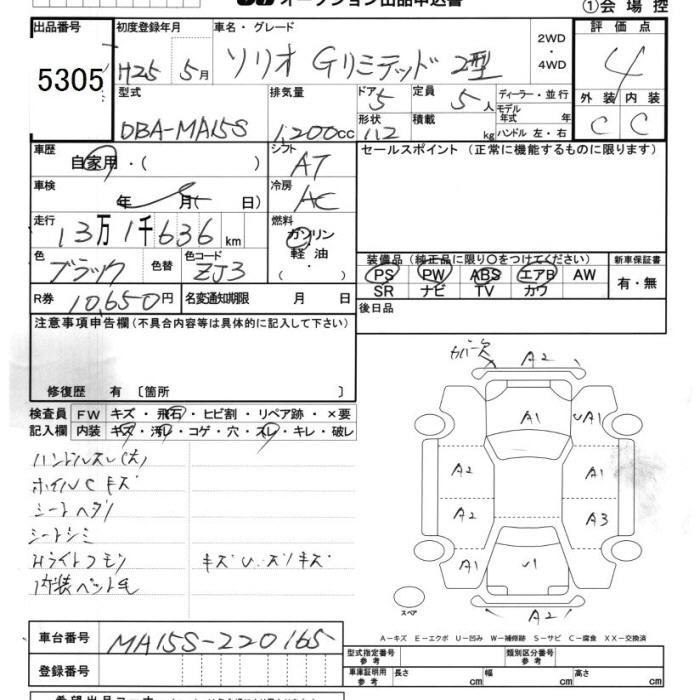 オークション出品申込書
①会場控
出品番号 初度登録年月 車名・グレード 2WD・4WD 評価点
5305 H25 5月 ソリオ Gリミテッド2型 4
型式 排気量 ドア 5 定員 5人 ディーラー・並行 外装 内装
DBA-MA15S 1,200cc 形状 積載 kg モデル年式 年 ハンドル 左・右 C C
車歴 自家用・( ) シフト AT セールスポイント (正常に機能するものに限ります)
車検 年 月( 日) 冷房 AC
走行 13万1千636km 燃料 ガソリン 軽油
色 ブラック 色替 色コード ZJ3 装備品 (純正品に限り○をつけてください) 新車保証書
PS PW ABS エアB AW 有・無
SR ナビ TV カワ
R券 10,650円 名変通知期限 月 日 後日品
注意事項申告欄(不具合内容等は具体的に記入して下さい)
修復歴 有 〔箇所 〕
検査員 FW キズ・飛石・ヒビ割・リペア跡・×要
記入欄 内装 キズ・汚レ・コゲ・穴・スレ・キレ・破レ
ハンドルスレ(大)
ホイルCキズ
シートヘタリ
シートシミ
Hライトクモリ
内装ペット毛
カバー欠 A2
A1 UA1
A2 A1
A2 A3
A1 U1
A2
スペア
A－キズ E－エクボ U－凹み W－補修跡 S－サビ C－腐食 XX－交換済
車台番号 MA15S-220165
型式指定番号 参考 類別区分番号 参考
登録番号
車庫証明用 参考 長さ cm 幅 cm 高さ cm